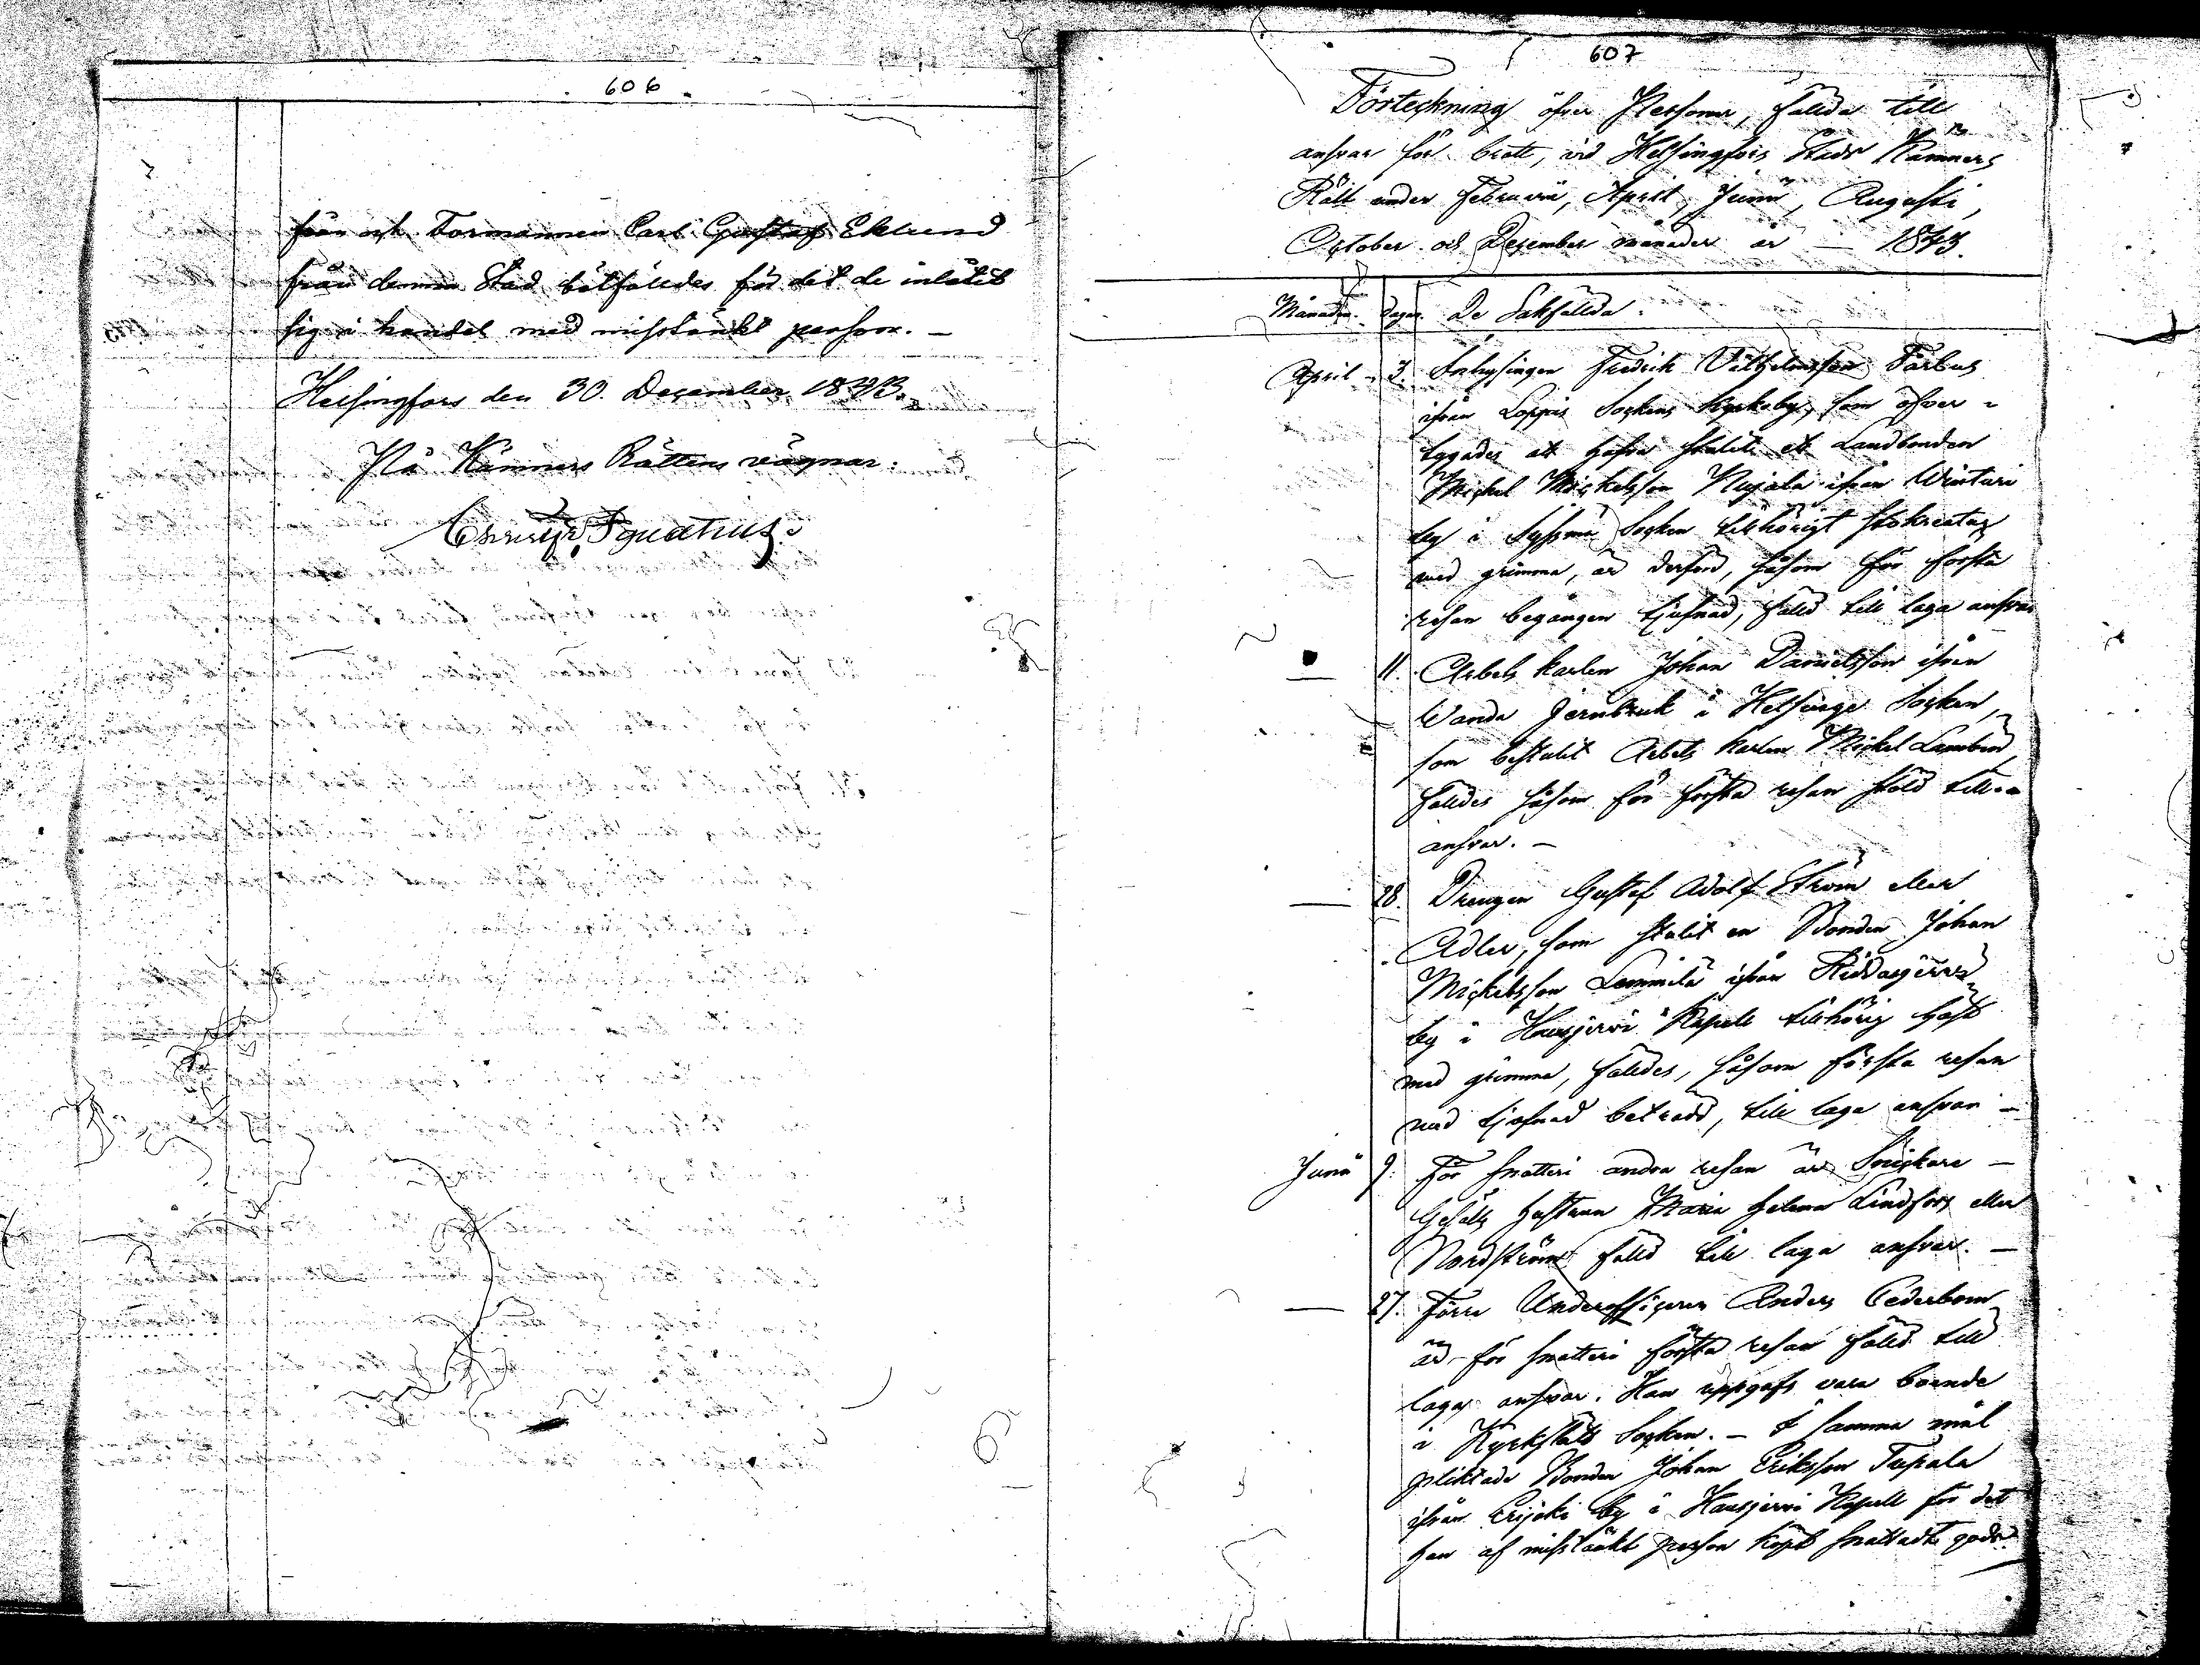 606
från och Formannen Carl Gustaf Eklund
från denna Stad bötfäldes för det de inlåtit
sig i handel med misstänkt person. —
Helsingfors den 30. December 1843.
På Kämners Rättens vägnar:
Ignatius.
607
Förteckning öfver Personer, fällda till
ansvar för brott, vid Helsingfors Stads Kämners
Rätt under Februarii, April, Junii, Augusti,
October och December månader år — 1843.
Månader. Dagar. De Sakfällda.
April 3. Inhysingen Fredrik Vilhelmsson Färbus
ifrån Loppis Sockens Kyrkoby, som öfver-
tygades at hafva stulit et Landbonden
Mickel Mickelsson Nujala ifrån Wintari
by i Sysmä Socken tillhörigt stokreatur
med grimma, är derföre, såsom för första
resan begången tjufnad, fälld till laga ansvar
11. Arbets karlen Johan Danielsson ifrån
Wanda Jernbruk i Helsinge Socken,
som bestulit Arbets karlen Mickel Lambin,
fälldes såsom för första resan stöld till
ansvar. —
28. Drengen Gustaf Adolf Ström eller
Adler, som stulit en Bonden Johan
Mickelsson Lemmilä ifrån Riddasjerwi
by i Hausjerwi Kapell tillhörig häst
med grimma, fälldes, såsom första resan
med tjufnad beträdd, till laga ansvar —
Junii 9. För snatteri andra resan är Snickare —
Gesälls hustrun Maria Helena Lindfors eller
Nordström fälld till laga ansvar. —
27. Förre Underofficeren Anders Cederbom
är för snatteri första resan fälld till
laga ansvar. Han uppgafs vara boende
i Kyrkslätt Socken. — I samma mål
pliktade Bonden Johan Eriksson Tupala
ifrån Erijoki by i Hausjerwi Kapell för det
han af misstänkt person köpt snattadt gods